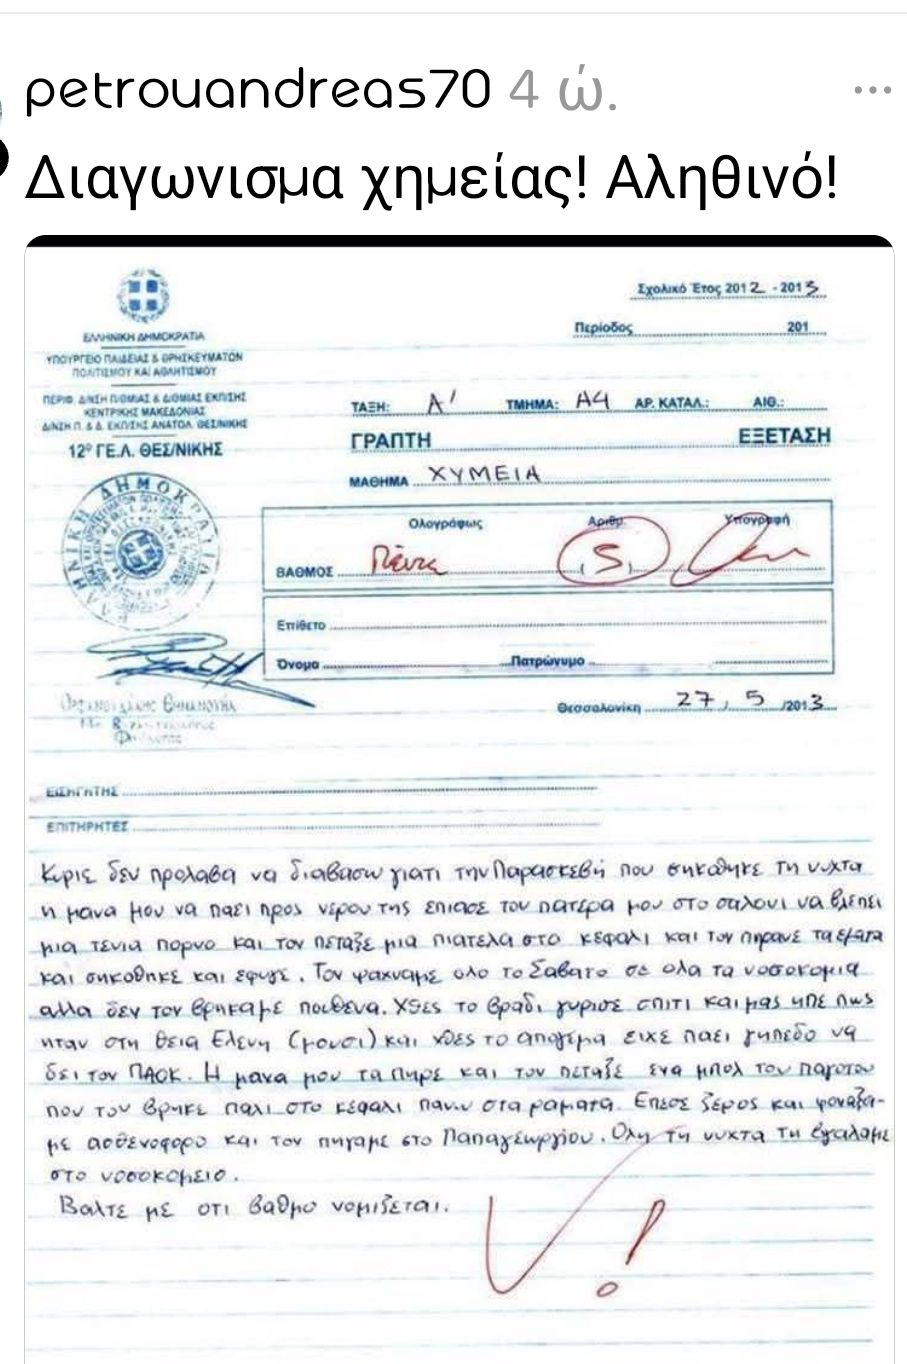 petrouandreas70 4 ώ.
Διαγωνισμα χημείας! Αληθινό!
Σχολικό Έτος 2012 - 2013
Περίοδος 201
ΕΛΛΗΝΙΚΗ ΔΗΜΟΚΡΑΤΙΑ
ΥΠΟΥΡΓΕΙΟ ΠΑΙΔΕΙΑΣ & ΘΡΗΣΚΕΥΜΑΤΩΝ
ΠΟΛΙΤΙΣΜΟΥ ΚΑΙ ΑΘΛΗΤΙΣΜΟΥ
ΠΕΡΙΦ. Δ/ΝΣΗ Π/ΘΜΙΑΣ & Δ/ΘΜΙΑΣ ΕΚΠ/ΣΗΣ
ΚΕΝΤΡΙΚΗΣ ΜΑΚΕΔΟΝΙΑΣ
Δ/ΝΣΗ Π. & Δ. ΕΚΠ/ΣΗΣ ΑΝΑΤΟΛ. ΘΕΣ/ΝΙΚΗΣ
12º ΓΕ.Λ. ΘΕΣ/ΝΙΚΗΣ
ΤΑΞΗ: Α' ΤΜΗΜΑ: Α4 ΑΡ. ΚΑΤΑΛ.: ΑΙΘ.:
ΓΡΑΠΤΗ ΕΞΕΤΑΣΗ
ΜΑΘΗΜΑ ΧΥΜΕΙΑ
Ολογράφως Αριθμ. Υπογραφή
ΒΑΘΜΟΣ Πέντε (5)
Επίθετο
Όνομα Πατρώνυμο
Θεσσαλονίκη 27, 5 /2013
ΕΙΣΗΓΗΤΗΣ
ΕΠΙΤΗΡΗΤΕΣ
Κυριε δεν προλαβα να διαβασω γιατι την Παρασκεβή που σηκωθηκε τη νυχτα
η μανα μου να παει προς νερου της επιασε τον πατερα μου στο σαλονι να βλεπει
μια τενια πορνο και τον πεταξε μια πιατελα στο κεφαλι και τον πηρανε τα εματα
και σηκοθηκε και εφυγε. Τον ψαχναμε ολο το Σαβατο σε ολα τα νοσοκομια
αλλα δεν τον βρηκαμε πουθενα. Χθες το βραδι γυρισε σπιτι και μας ηπε πως
ηταν στη θεια Ελενη (μουσι) και χθες το απογεμα ειχε παει γηπεδο να
δει τον ΠΑΟΚ. Η μανα μου τα πηρε και τον πεταξε ενα μπολ του παγοτου
που τον βρηκε παλι στο κεφαλι πανω στα ραματα. Επεσε ξερος και φοναξα-
με ασθενοφορο και τον πηγαμε στο Παπαγεωργίου. Ολη τη νυχτα τη εγαλαμε
στο νοσοκομειο.
Βαλτε με οτι βαθμο νομιζεται.
!